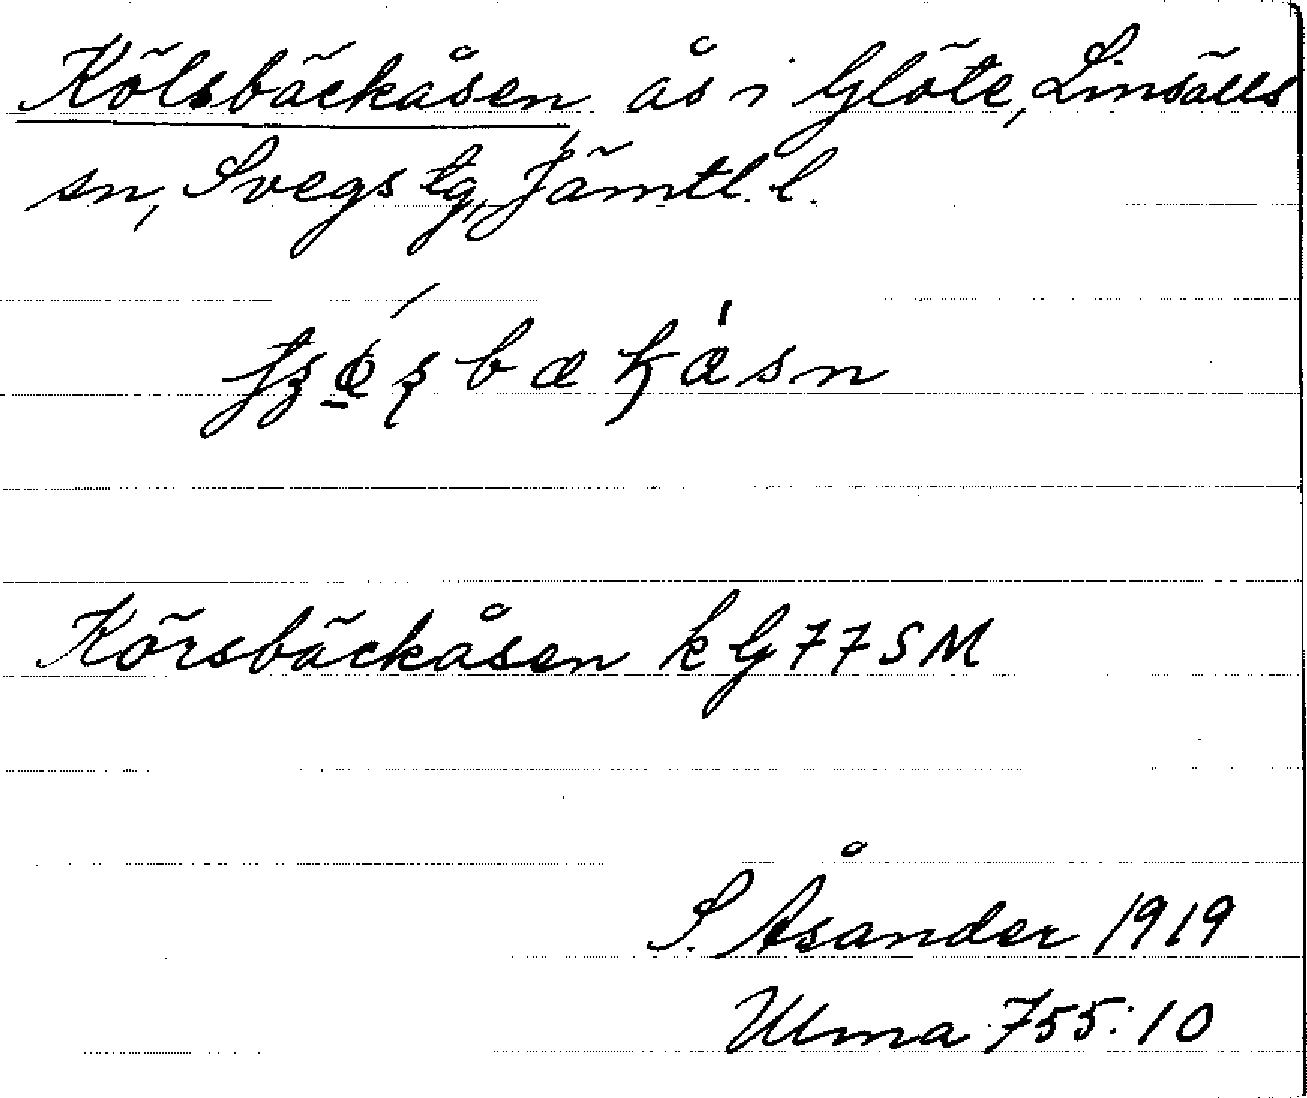 Kölsbäckåsen, ås i Glöte, Linsälls
sn, Svegs tg, Jämtl. l.
Körsbäckåsen k G 77 SM
S. Åsander 1919
Ulma 755:10